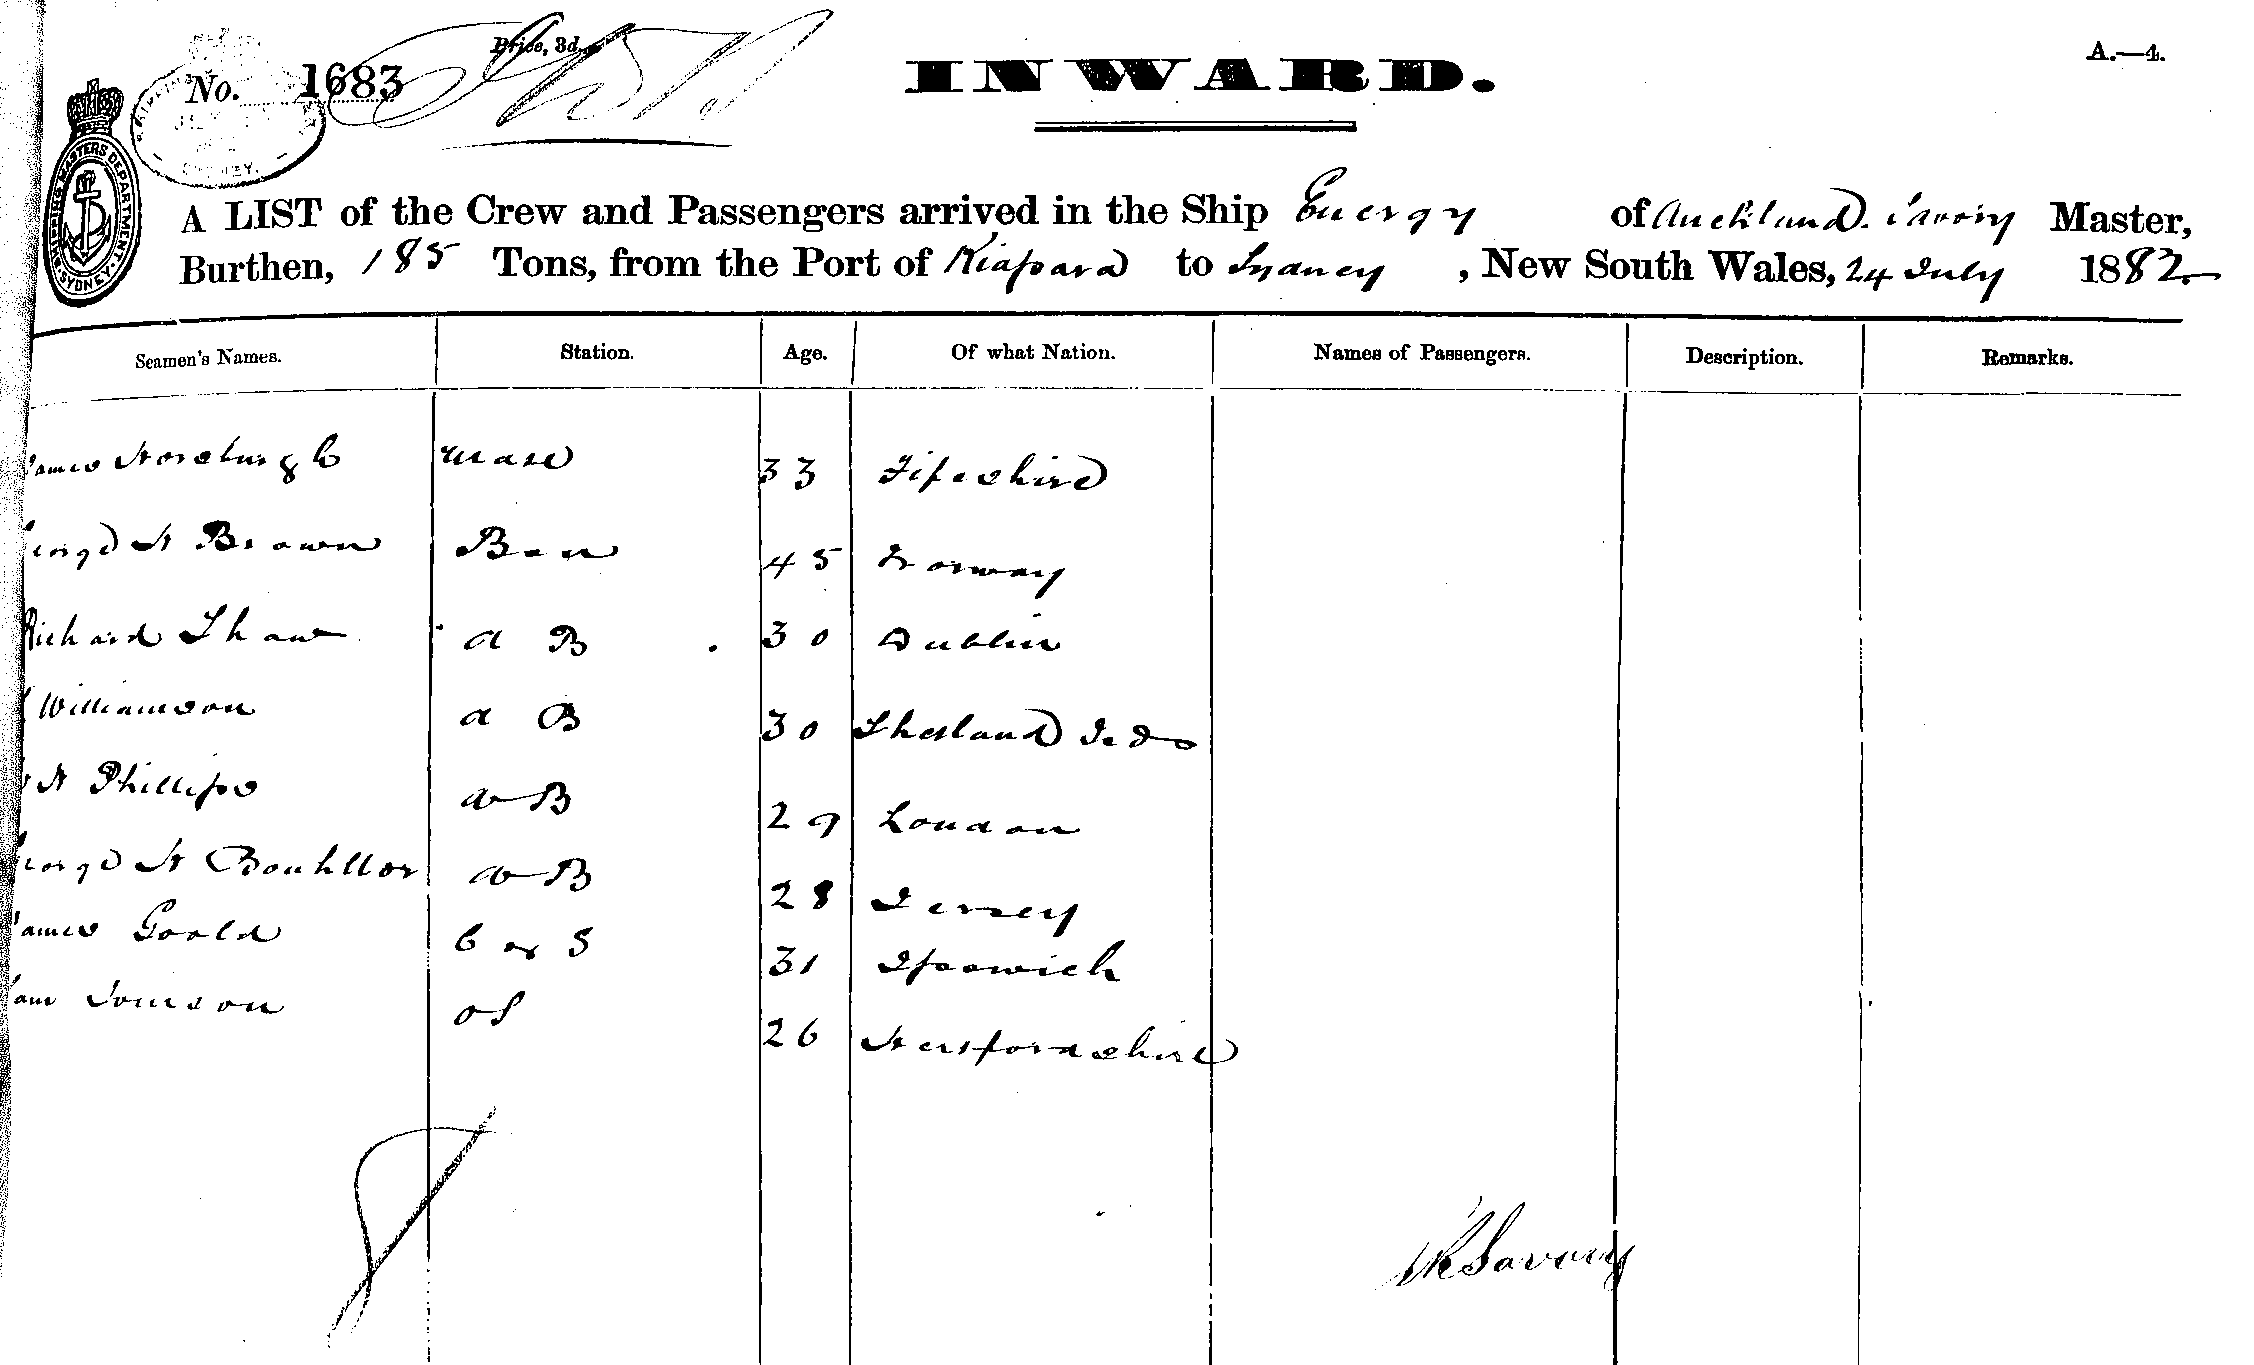 Price, 3d.
No. 1683
INWARD.
A.—4.
SHIPPING MASTERS DEPARTMENT. SYDNEY.
A LIST of the Crew and Passengers arrived in the Ship Energy of Auckland. Savory Master,
Burthen, 185 Tons, from the Port of Kiapara to Sydney, New South Wales, 24 July 1882.
Seamen's Names. Station. Age. Of what Nation. Names of Passengers. Description. Remarks.
James Horsburgh Mate 33 Fifeshire
George H Brown Bsn 45 Norway
Richard Shaw a B 30 Dublin
Williamson a B 30 Shetland Isds
H Phillips a B 29 London
George H a B 28 Jersey
James Goold C & S 31 Ipswich
Tomson o S 26 Hertfordshire
Savory